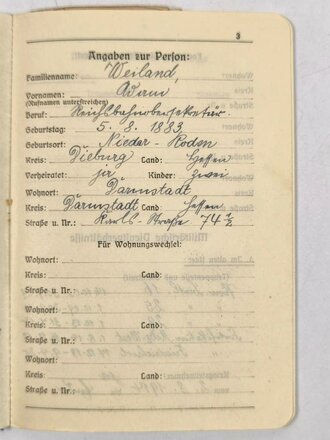 3
Angaben zur Person:
Familienname: Weiland,
Vornamen: Adam
(Rufnamen unterstreichen)
Beruf: Reichsbahnobersekretär
Geburtstag: 5. 8. 1883.
Geburtsort: Nieder-Roden
Kreis: Dieburg Land: Hessen
Verheiratet: ja Kinder: zwei
Wohnort: Darmstadt
Kreis: Darmstadt Land: Hessen
Straße u. Nr.: Karls-Straße 74 1/2
Für Wohnungswechsel:
Wohnort:
Kreis: Land:
Straße u. Nr.:
Wohnort:
Kreis: Land:
Straße u. Nr.:
Wohnort:
Kreis: Land:
Straße u. Nr.: